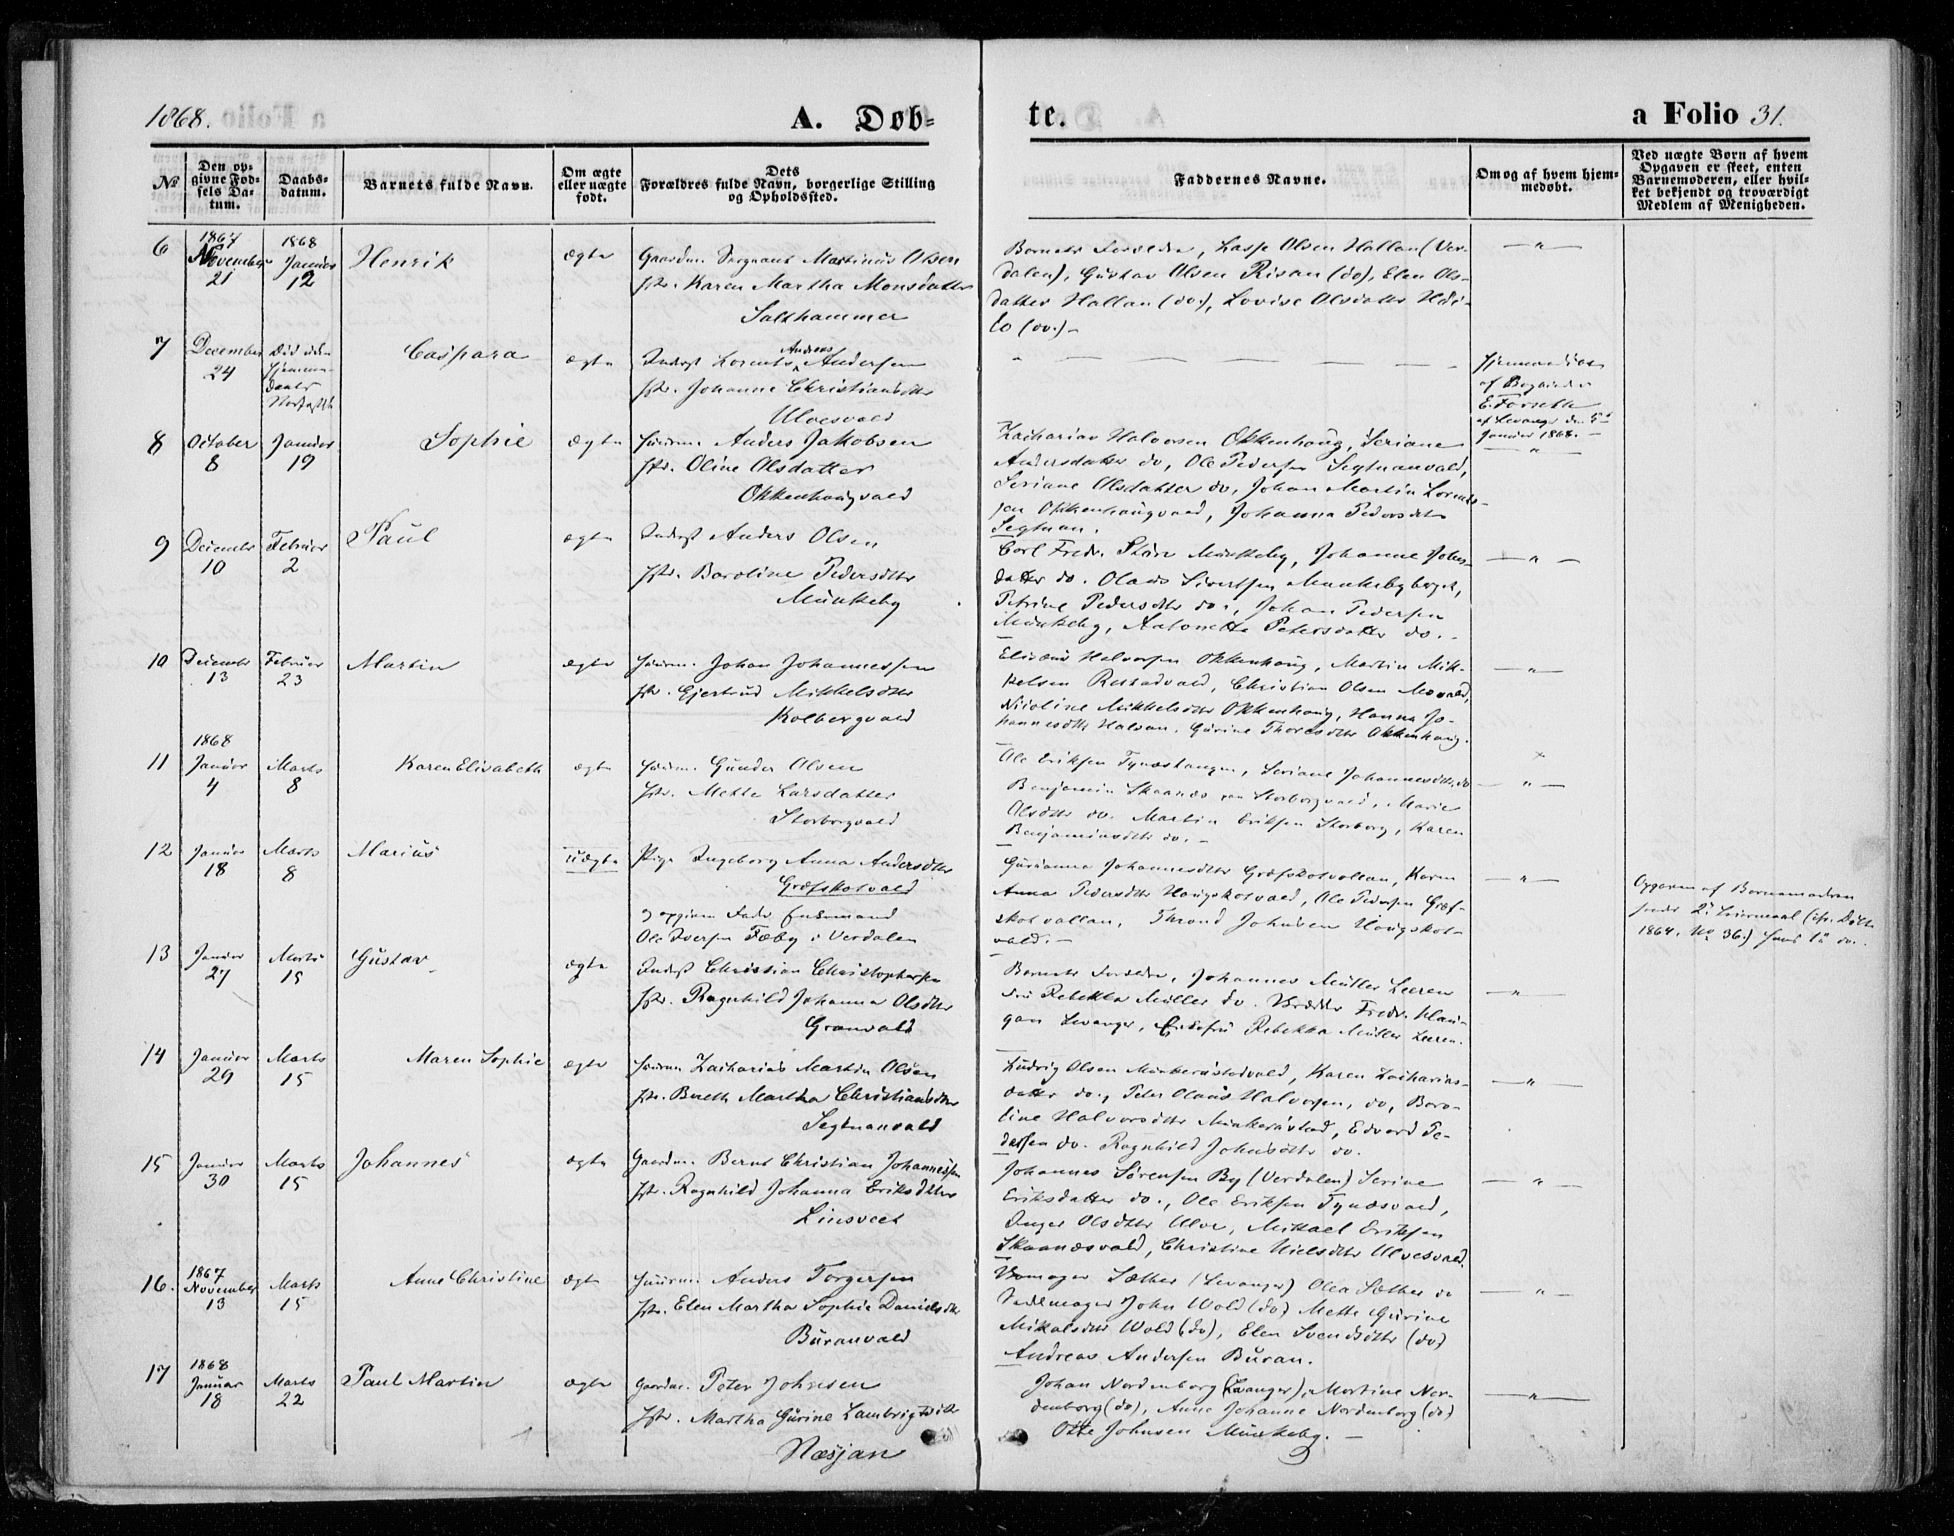 1868. A. Døb-
te. a Folio 31.
№
Den opgivne Fødsels Datum.
Daabsdatum.
Barnets fulde Navn.
Om ægte eller uægte født.
Dets Forældres fulde Navn, borgerlige Stilling og Opholdssted.
Faddernes Navne.
Om og af hvem hjemmedøbt.
Ved uægte Børn af hvem Opgaven er skeet, enten Barnemoderen, eller hvilket bekjendt og troværdigt Medlem af Menigheden.
6 1867 November 21 1868 Januar 12 Henrik ægte Gaardm. Sergeant Martinus Olsen
Karen Martha Monsdatter
Salthammer
Barnets Forældre, Lasse Olsen Hallan (Ver-
dalen), Gustav Olsen Risan (do), Elen Ols-
datter Hallan (do.), Lovise Olsdatter
(do.) -
7 December 24 Caspara ægte Inderst Lorents Andreas Andersen
Johanne Christiansdtr
Ulvesvald
Hjemmedøbt
af
E. Forseth
af Levanger den 5
Januar 1868. -
8 October 8 Januar 19 Sophie ægte Huusm. Anders Jakobsen
Oline Olsdatter
Okkenhougvald
Zacharias Halvorsen Okkenhaug, Seriane
Andersdatter do, Ole Pedersen Segtnanvald,
Seriane Olsdatter do, Johan Martin Lorents-
sen Okkenhaugvald, Johanna Pedersdtr
Segtnan.
9 December 10 Februar 2 Paul ægte Inderst Anders Olsen
Baroline Pedersdtr
Munkeby
Carl Fredr. Munkeby, Johanne Johns-
datter do. Olaus Sivertsen Munkebyberget,
Petrine Pedersdtr do., Johan Pedersen
Munkeby, Antonette Petersdatter do. -
10 December 13 Februar 23 Martin ægte Huusm. Johan Johannessen
Gjertrud Mikkelsdtr
Kolbergvald
Eliseus Halvorsen Okkenhaug, Martin Mik-
kelsen Restadvald, Christian Olsen Movald,
Nicoline Mikkelsdtr Okkenhaug, Hanna Jo-
hannesdtr Halsan, Gurine Thoresdtr Okkenhaug.
11 1868 Januar 4 Marts 8 Karen Elisabeth ægte Huusm. Gunder Olsen
Mette Larsdatter
Storborgvald
Ole Eriksen Tynæstangen, Seriane Johannesdtr do
Benjamin Skaanæs Storborgvald, Marie
Olsdtr do. Martin Eriksen Storborg, Karen
Benjaminsdtr do. -
12 Januar 18 Marts 8 Marius uægte Pige Ingeborg Anna Andersdtr
Græfskotvald
og opgiven Fader Enkemand
Ole Iversen Fæby i Verdalen
Gurianna Johannesdtr Græfskotvollan, Karen
Anna Pedersdtr Hougskotvald, Ole Pedersen Græf-
skotvollan, Thrond Johnsen Hougskot-
vald. -
Opgaven af Barnemoderen
hendes 2' Leiermaal (cfr. Døbte
1864. No 36.) hans 1' do.
13 Januar 27 Marts 15 Gustav ægte Inderst Christian Christophersen
Ragnhild Johanna Olsdtr
Granvald
Barnets Forældre, Johannes Müller Leeren
Rebekka Müller do. Fredr. Hau-
gan Levanger, Rebekka Müller Leeren.
14 Januar 29 Marts 15 Maren Sophie ægte Huusm. Zacharias Martin Olsen
Bereth Martha Christiansdtr
Segtnanvald
Ludvig Olsen Munkerøstadvald, Karen Zacharias-
datter do., Peter Olaus Halvorsen, do, Baro-
line Halvorsdtr Munkerøstad, Edvard Pe-
dersen do. Ragnhild Johnsdtr do.
15 Januar 30 Marts 15 Johannes ægte Gaardm. Bernt Christian Johannessen
Ragnhild Johanna Eriksdtr
Linsveet
Johannes Sørensen By (Verdalen) Serine
Eriksdatter do., Ole Eriksen Tynæsvald,
Inger Olsdtr Ulve, Mikael Eriksen
Skaanæsvald, Christine Nielsdtr Ulvesvald.
16. 1867 November 13 Marts 15 Anne Christine ægte Huusm. Anders Torgersen
Elen Martha Sophie Danielsdtr
Buranvald
Sæther (Levanger) Olea Sæther do
Sadelmager John Wold (do) Mette Gurine
Mikalsdtr Wold (do), Elen Svendsdtr (do)
Andreas Andersen Buran.
17 1868 Januar 18 Marts 22 Paul Martin ægte Gaardm. Peter Johnsen
Martha Gurine Lambrigtsdtr
Næsjan
Johan Nordenborg (Levanger), Martine Nor-
denborg (do), Anne Johanne Nordenborg (do)
Otte Johnsen Munkeby. -